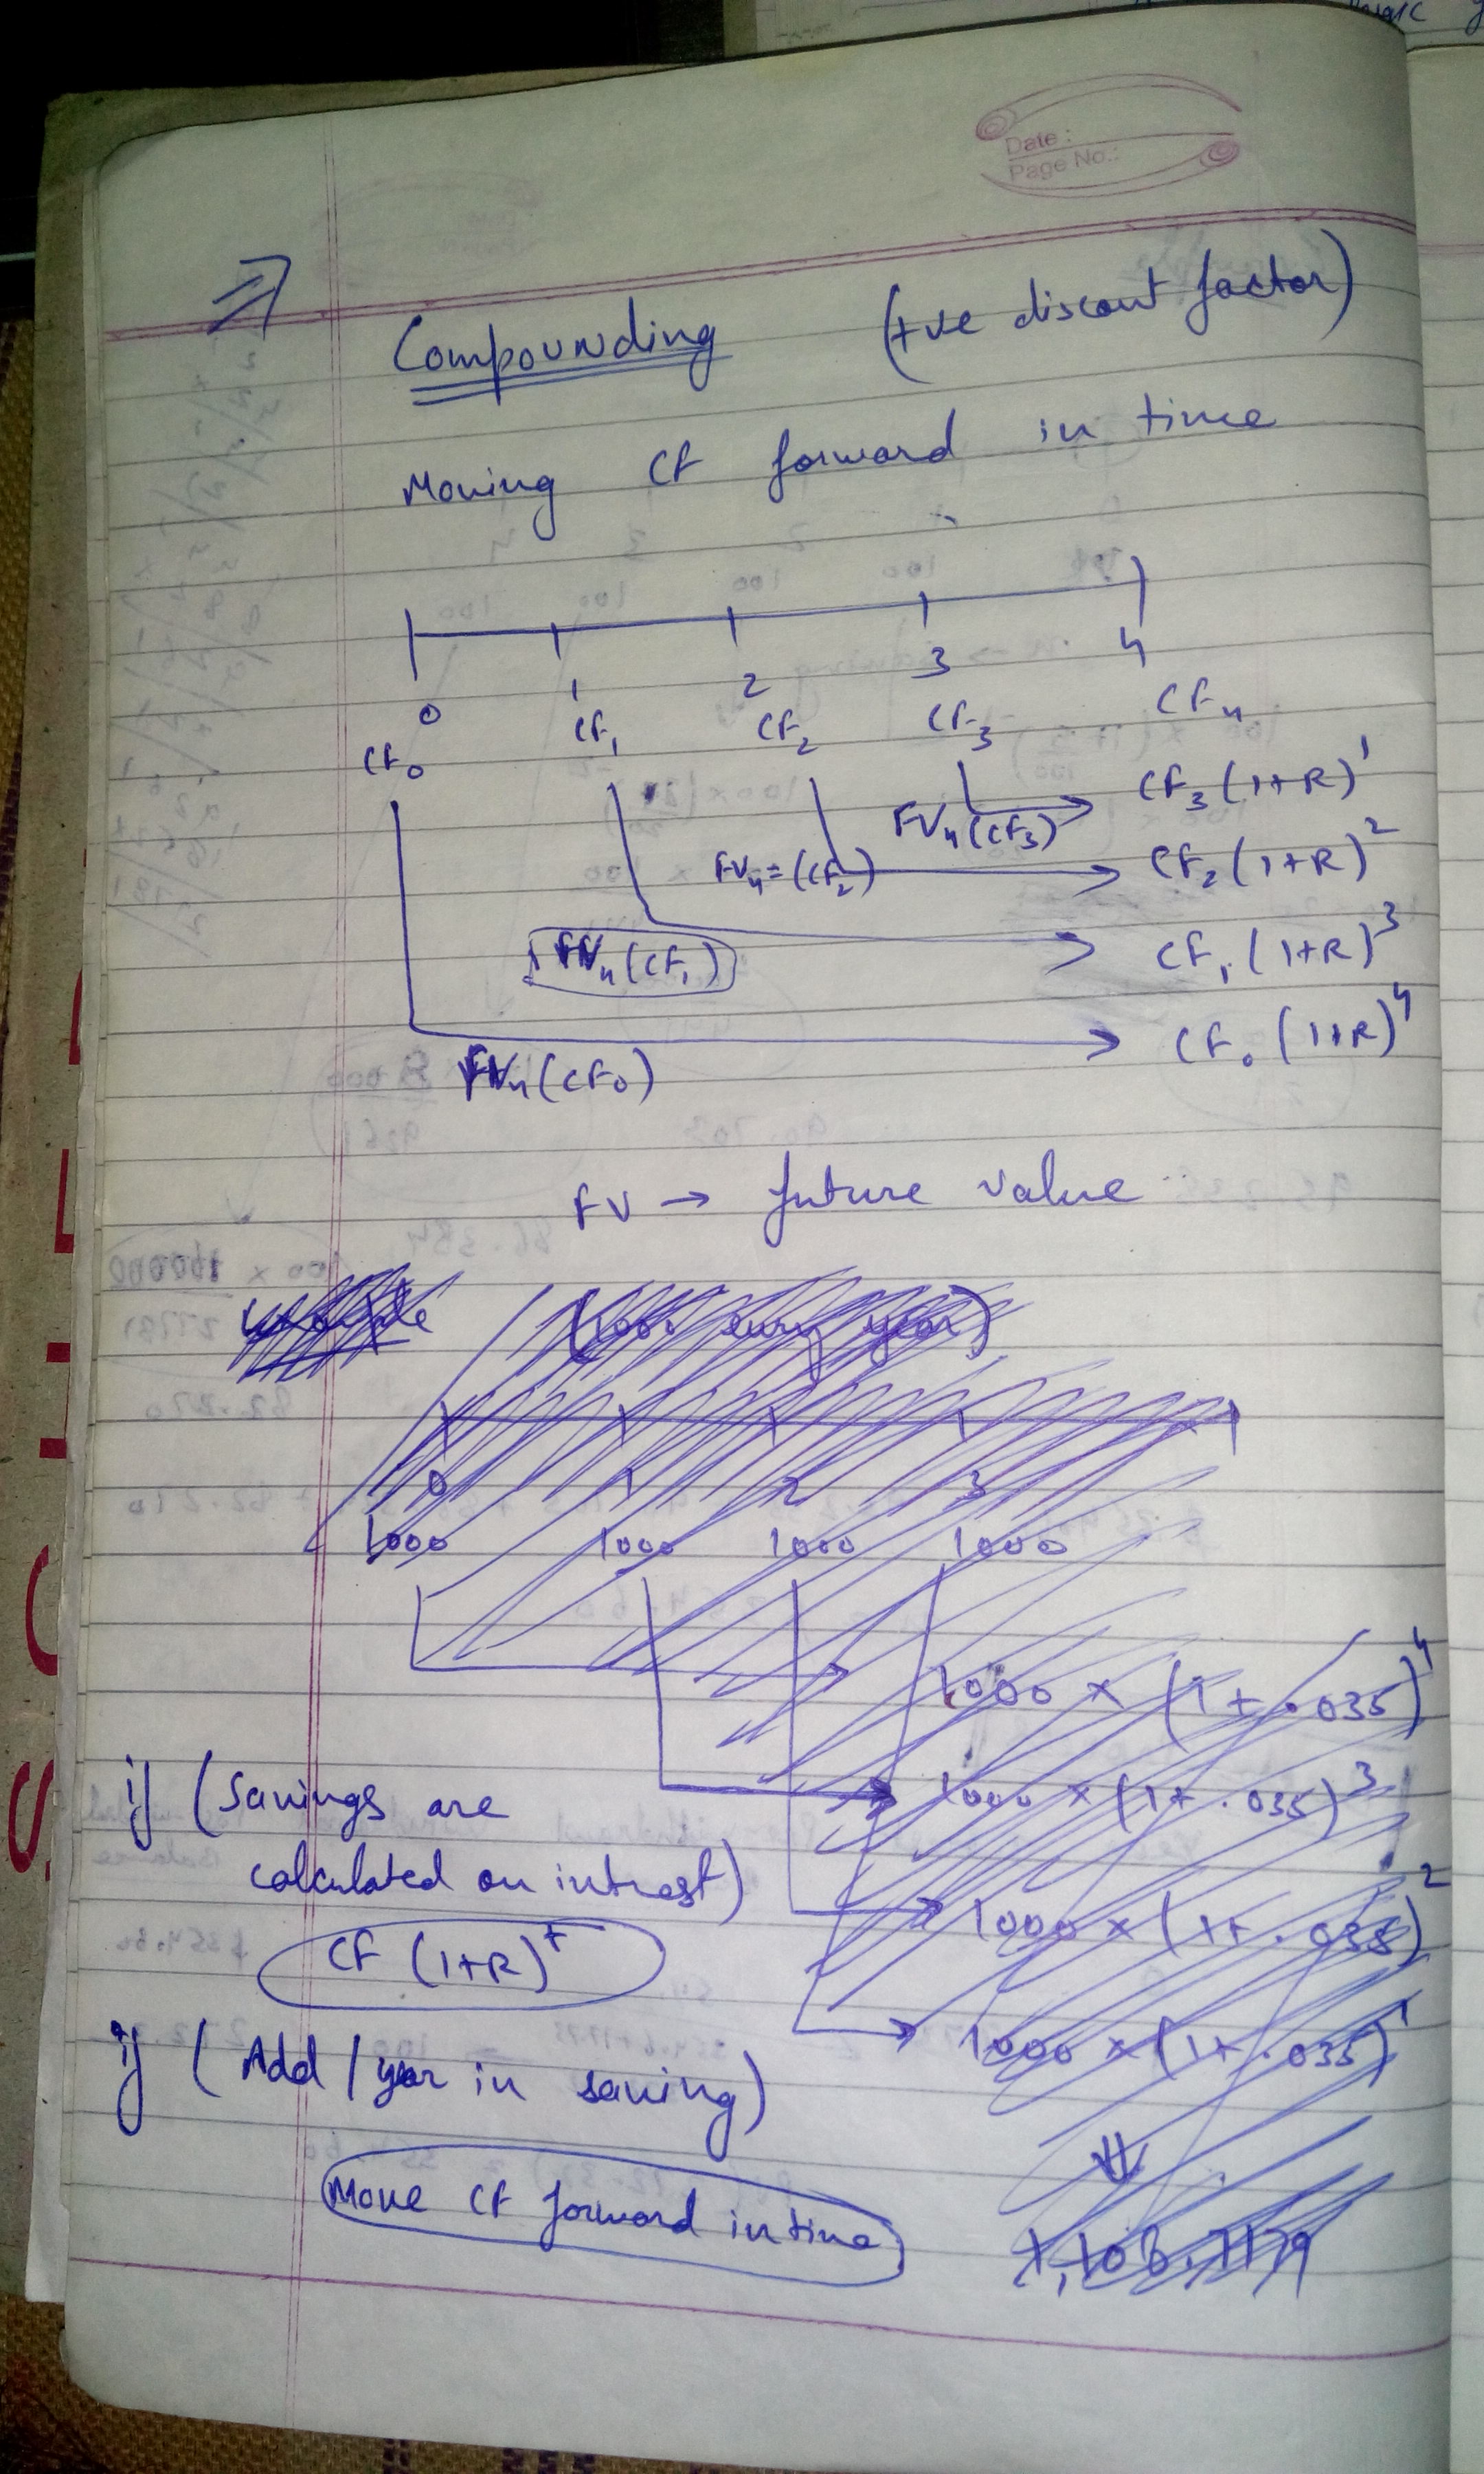 Date :
Page No.:
⇒
Compounding (+ve discout factor)
Moving CF forward in time
0 1 2 3 4
CF₀ CF₁ CF₂ CF₃ CF₄
FV₄(CF₃) → CF₃(1+R)¹
FV₄=(CF₂) → CF₂(1+R)²
FV₄(CF₁) → CF₁(1+R)³
FV₄(CF₀) → CF₀(1+R)⁴
FV → future value
(1000 every year)
0 1 2 3
1000 1000 1000 1000
1000 × (1+.035)⁴
1000 × (1+.035)³
1000 × (1+.035)²
1000 × (1+.035)¹
if (Savings are
calculated on intrest)
CF (1+R)
if (Add / year in saving)
Move CF forward in time